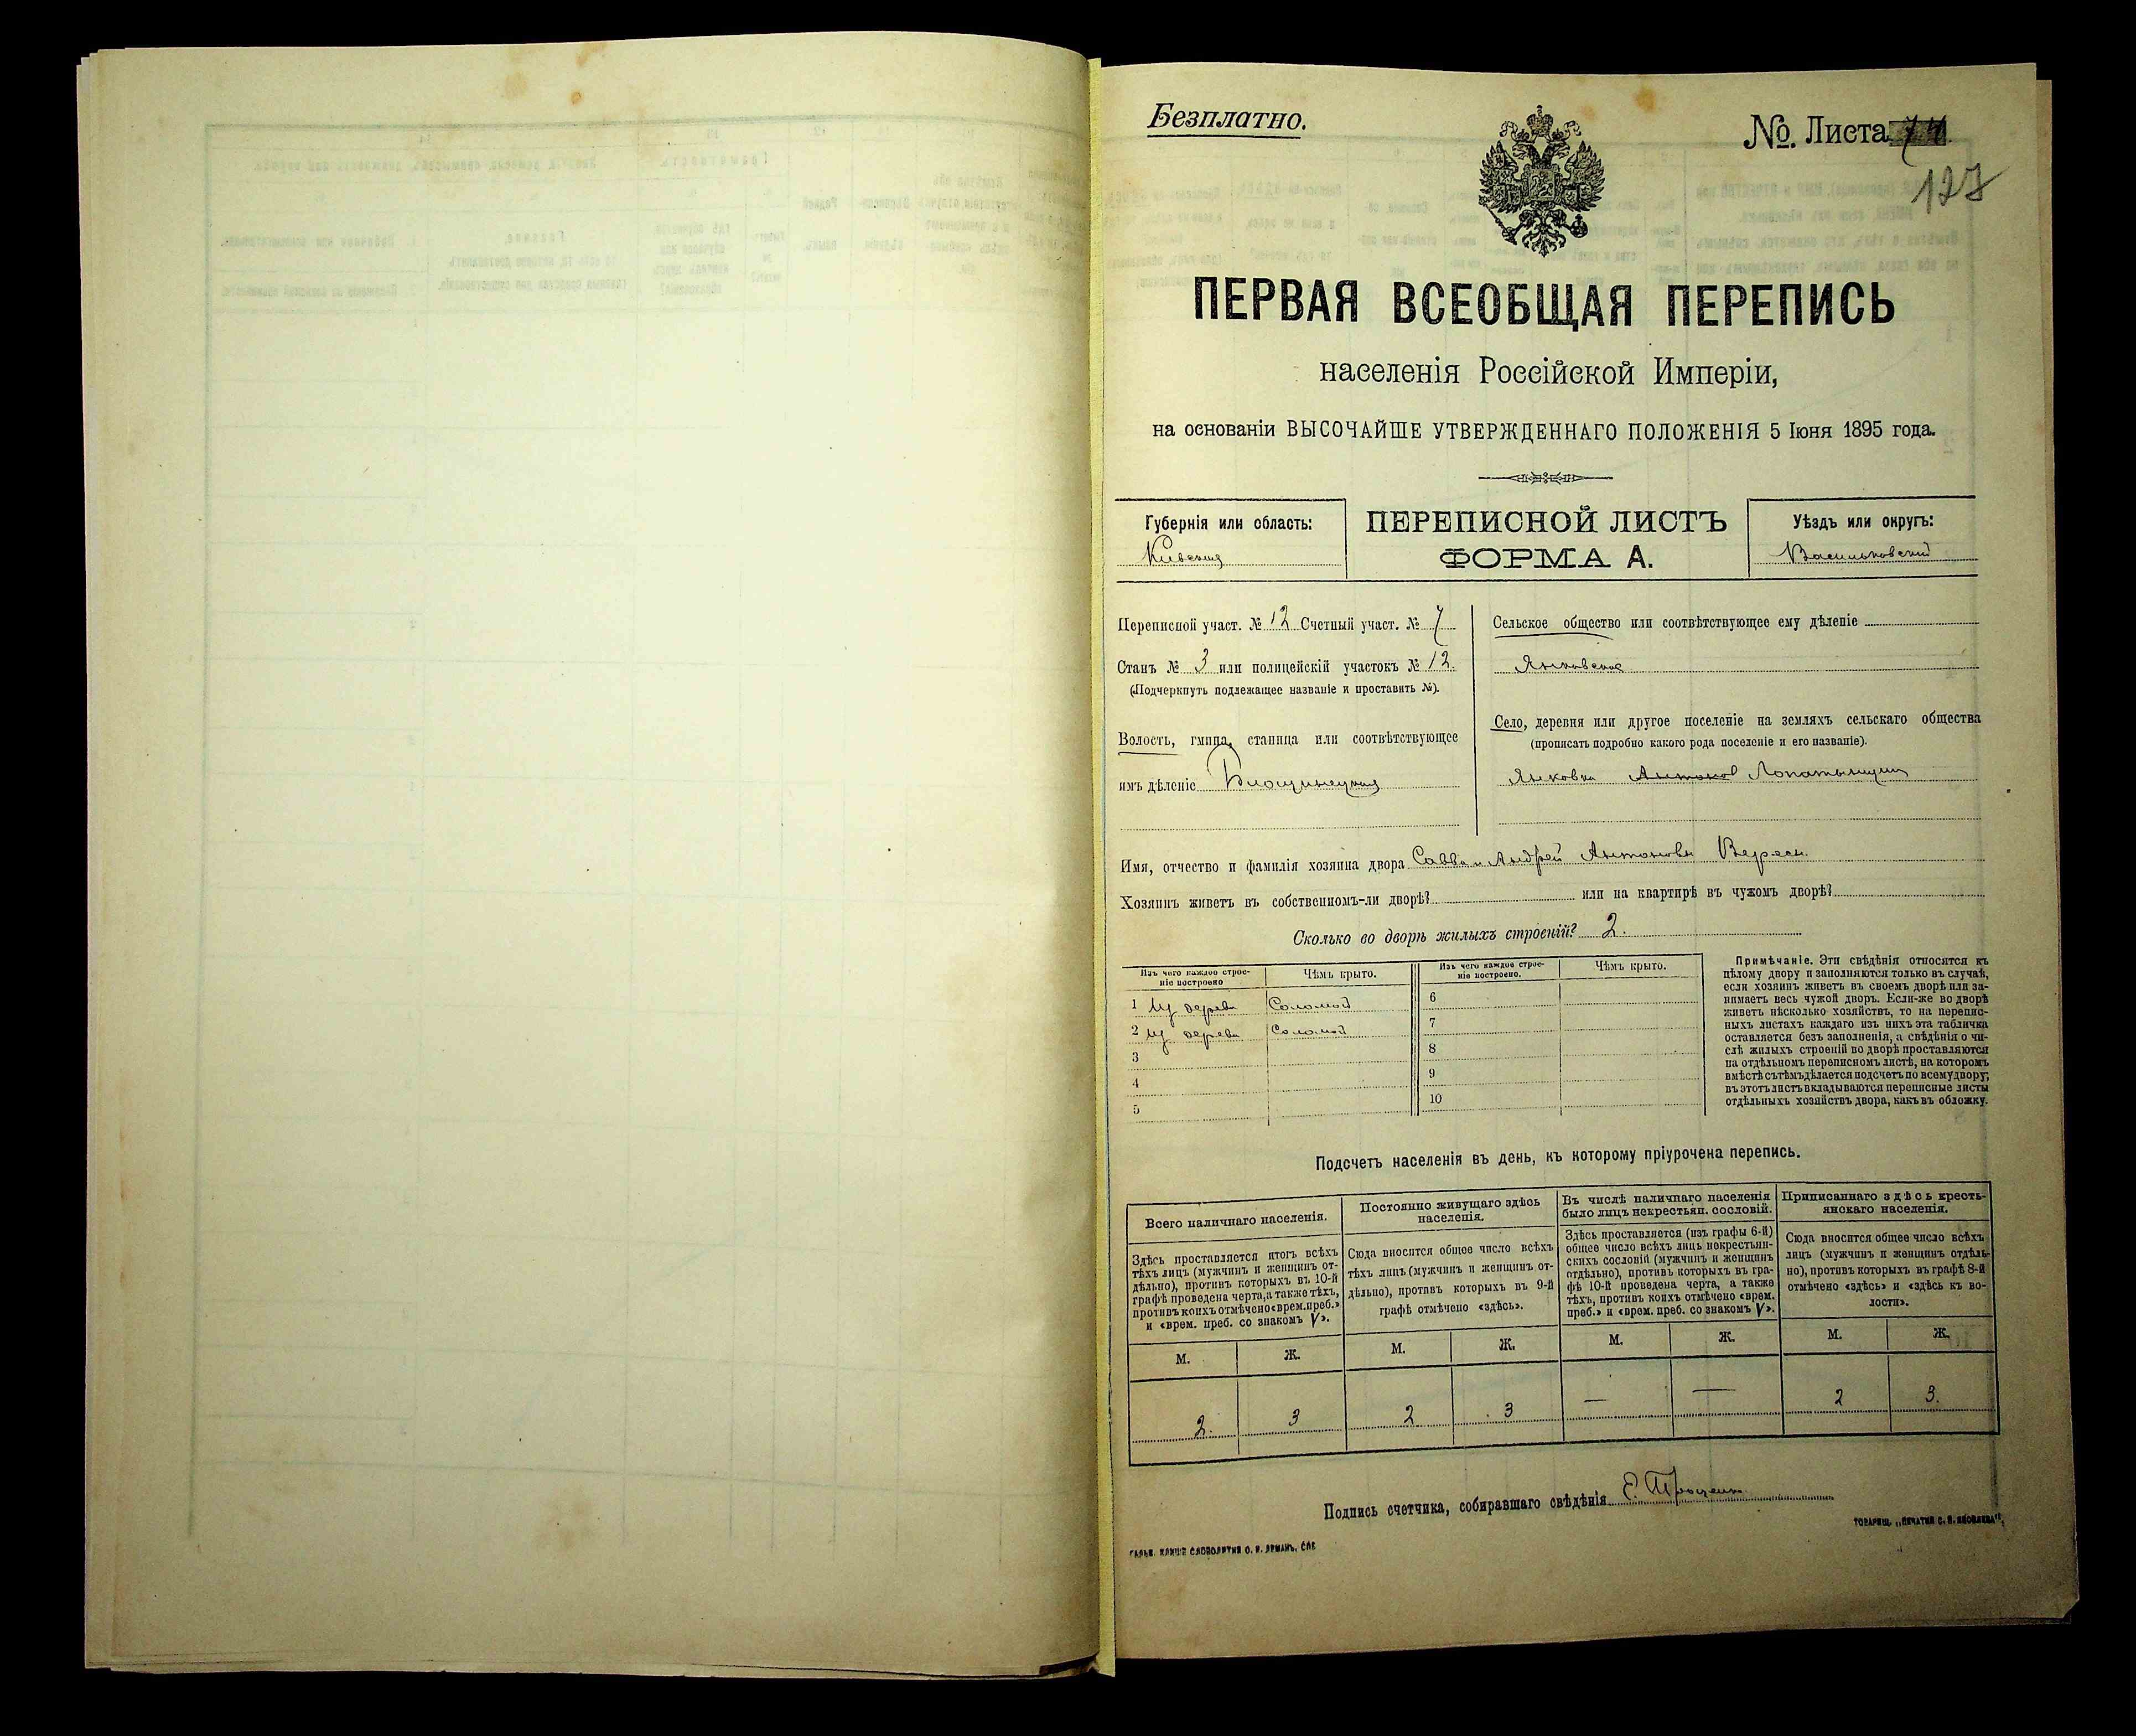 Безплатно.
№. Листа 74
127
ПЕРВАЯ ВСЕОБЩАЯ ПЕРЕПИСЬ
населенія Россійской Имперіи,
на основаніи ВЫСОЧАЙШЕ УТВЕРЖДЕННАГО ПОЛОЖЕНІЯ 5 Іюня 1895 года.
Губернія или область:
Кіевская
ПЕРЕПИСНОЙ ЛИСТЪ
ФОРМА А.
Уѣздъ или округъ:
Васильковский
Переписной участ. № 12 Счетный участ. № 7
Станъ № 3 или полицейскій участокъ № 12.
(Подчеркнуть подлежащее названіе и проставить №).
Волость, гмина, станица или соотвѣтствующее
имъ дѣленіе Блощинецкая
Сельское общество или соотвѣтствующее ему дѣленіе
Янковское
Село, деревня или другое поселеніе на земляхъ сельскаго общества
(прописать подробно какого рода поселеніе и его названіе).
Янковка
Имя, отчество и фамилія хозяина двора Савва и Андрей Антоновы
Хозяинъ живетъ въ собственномъ-ли дворѣ? или на квартирѣ въ чужомъ дворѣ?
Сколько во дворѣ жилыхъ строеній? 2.
Изъ чего каждое строе-
ніе построено
Чѣмъ крыто.
Изъ чего каждое строе-
ніе построено.
Чѣмъ крыто.
1 Из дерева Соломой
2 из дерева Соломой
3
4
5
6
7
8
9
10
Примѣчаніе. Эти свѣдѣнія относятся къ
цѣлому двору и заполняются только въ случаѣ,
если хозяинъ живетъ въ своемъ дворѣ или за-
нимаетъ весь чужой дворъ. Если-же во дворѣ
живетъ нѣсколько хозяйствъ, то на перепис-
ныхъ листахъ каждаго изъ нихъ эта табличка
оставляется безъ заполненія, а свѣдѣнія о чи-
слѣ жилыхъ строеній во дворѣ проставляются
на отдѣльномъ переписномъ листѣ, на которомъ
вмѣстѣ съ тѣмъ дѣлается подсчетъ по всему двору;
въ этотъ листъ вкладываются переписные листы
отдѣльныхъ хозяйствъ двора, какъ въ обложку.
Подсчетъ населенія въ день, къ которому пріурочена перепись.
Всего наличнаго населенія.
Здѣсь проставляется итогъ всѣхъ
тѣхъ лицъ (мужчинъ и женщинъ от-
дѣльно), противъ которыхъ въ 10-й
графѣ проведена черта, а также тѣхъ,
противъ коихъ отмѣчено «врем. преб.»
и «врем. преб. со знакомъ V».
Постоянно живущаго здѣсь
населенія.
Сюда вносится общее число всѣхъ
тѣхъ лицъ (мужчинъ и женщинъ от-
дѣльно), противъ которыхъ въ 9-й
графѣ отмѣчено «здѣсь».
Въ числѣ наличнаго населенія
было лицъ некрестьян. сословій.
Здѣсь проставляется (изъ графы 6-й)
общее число всѣхъ лицъ некрестьян-
скихъ сословій (мужчинъ и женщинъ
отдѣльно), противъ которыхъ въ гра-
фѣ 10-й проведена черта, а также
тѣхъ, противъ коихъ отмѣчено «врем.
преб.» и «врем. преб. со знакомъ V».
Приписаннаго здѣсь кресть-
янскаго населенія.
Сюда вносится общее число всѣхъ
лицъ (мужчинъ и женщинъ отдѣль-
но), противъ которыхъ въ графѣ 8-й
отмѣчено «здѣсь» и «здѣсь къ во-
лости».
М. Ж. М. Ж. М. Ж. М. Ж.
2. 3 2 3 — — 2 3.
Подпись счетчика, собиравшаго свѣдѣнія
ТОВАРИЩ. „ПЕЧАТНЯ С. П. ЯКОВЛЕВА",